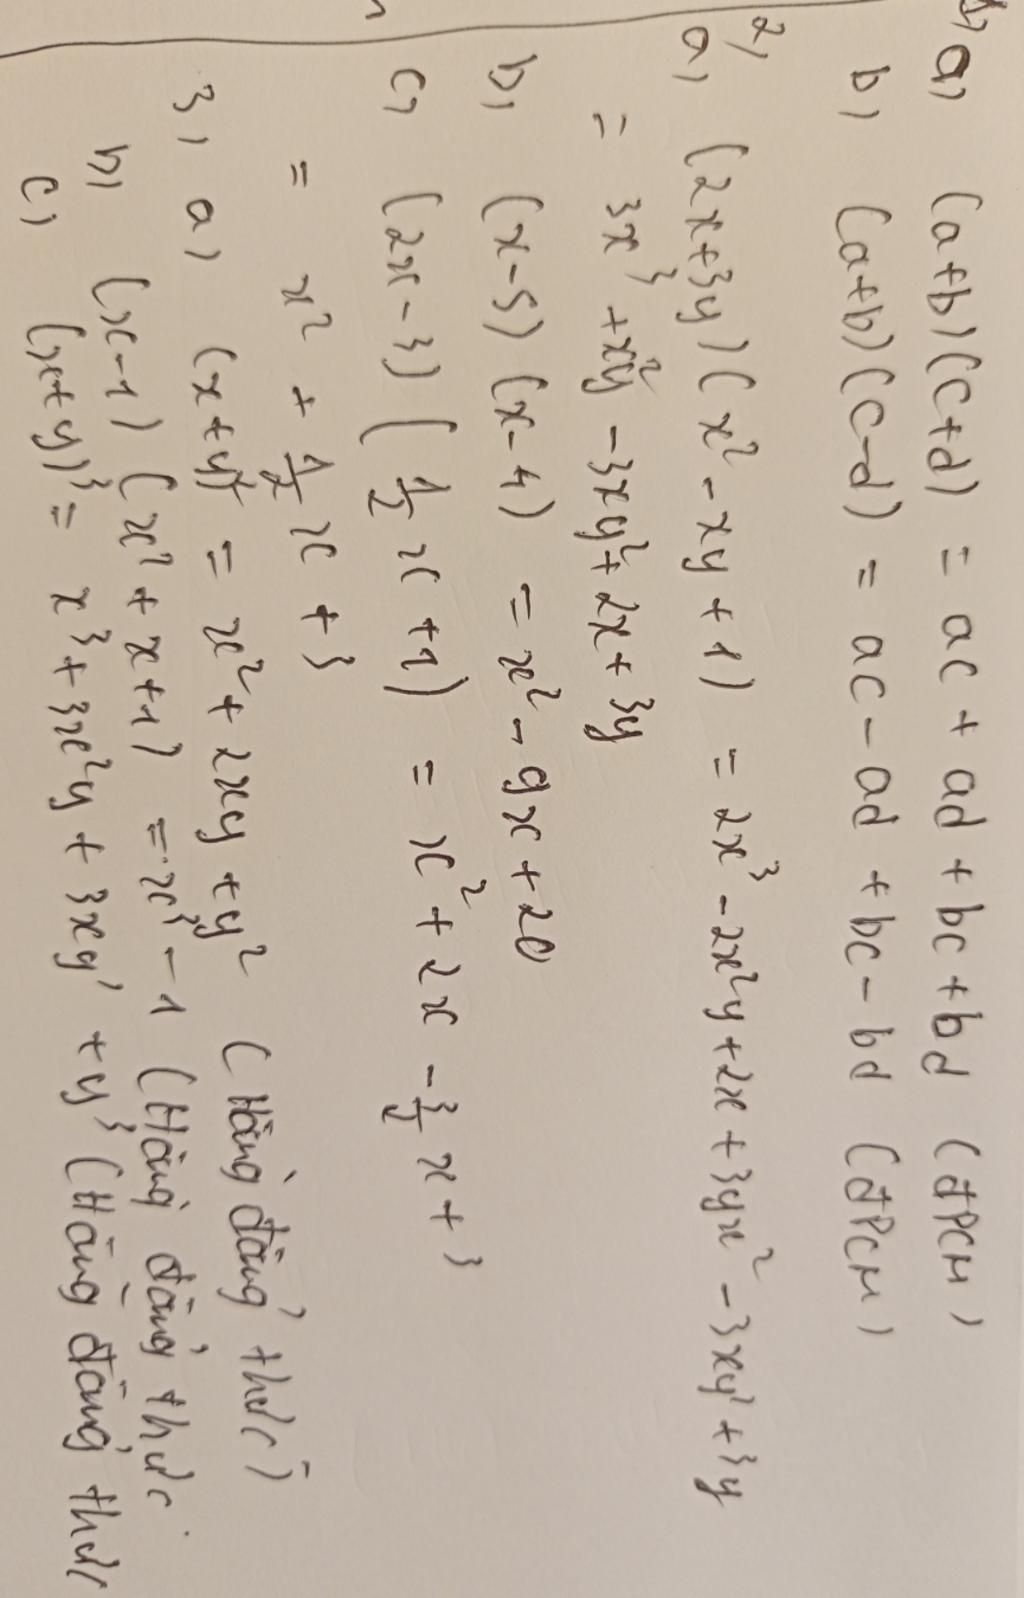 1, a, (a+b)(c+d) = ac + ad + bc + bd (đPCM)
b, (a+b)(c-d) = ac - ad + bc - bd (đPCM)
2,
a, (2x+3y)(x² - xy + 1) = 2x³ - 2x²y + 2x + 3yx² - 3xy² + 3y
= 3x³ + x²y - 3xy² + 2x + 3y
b, (x-5)(x-4) = x² - 9x + 20
c, (2x-3)(1/2 x + 1) = x² + 2x - 3/2 x + 3
= x² + 1/2 x + 3
3, a, (x+y)² = x² + 2xy + y² (Hằng đẳng thức)
b, (x-1)(x² + x + 1) = x³ - 1 (Hằng đẳng thức
c, (x+y)³ = x³ + 3x²y + 3xy² + y³ (Hằng đẳng thức